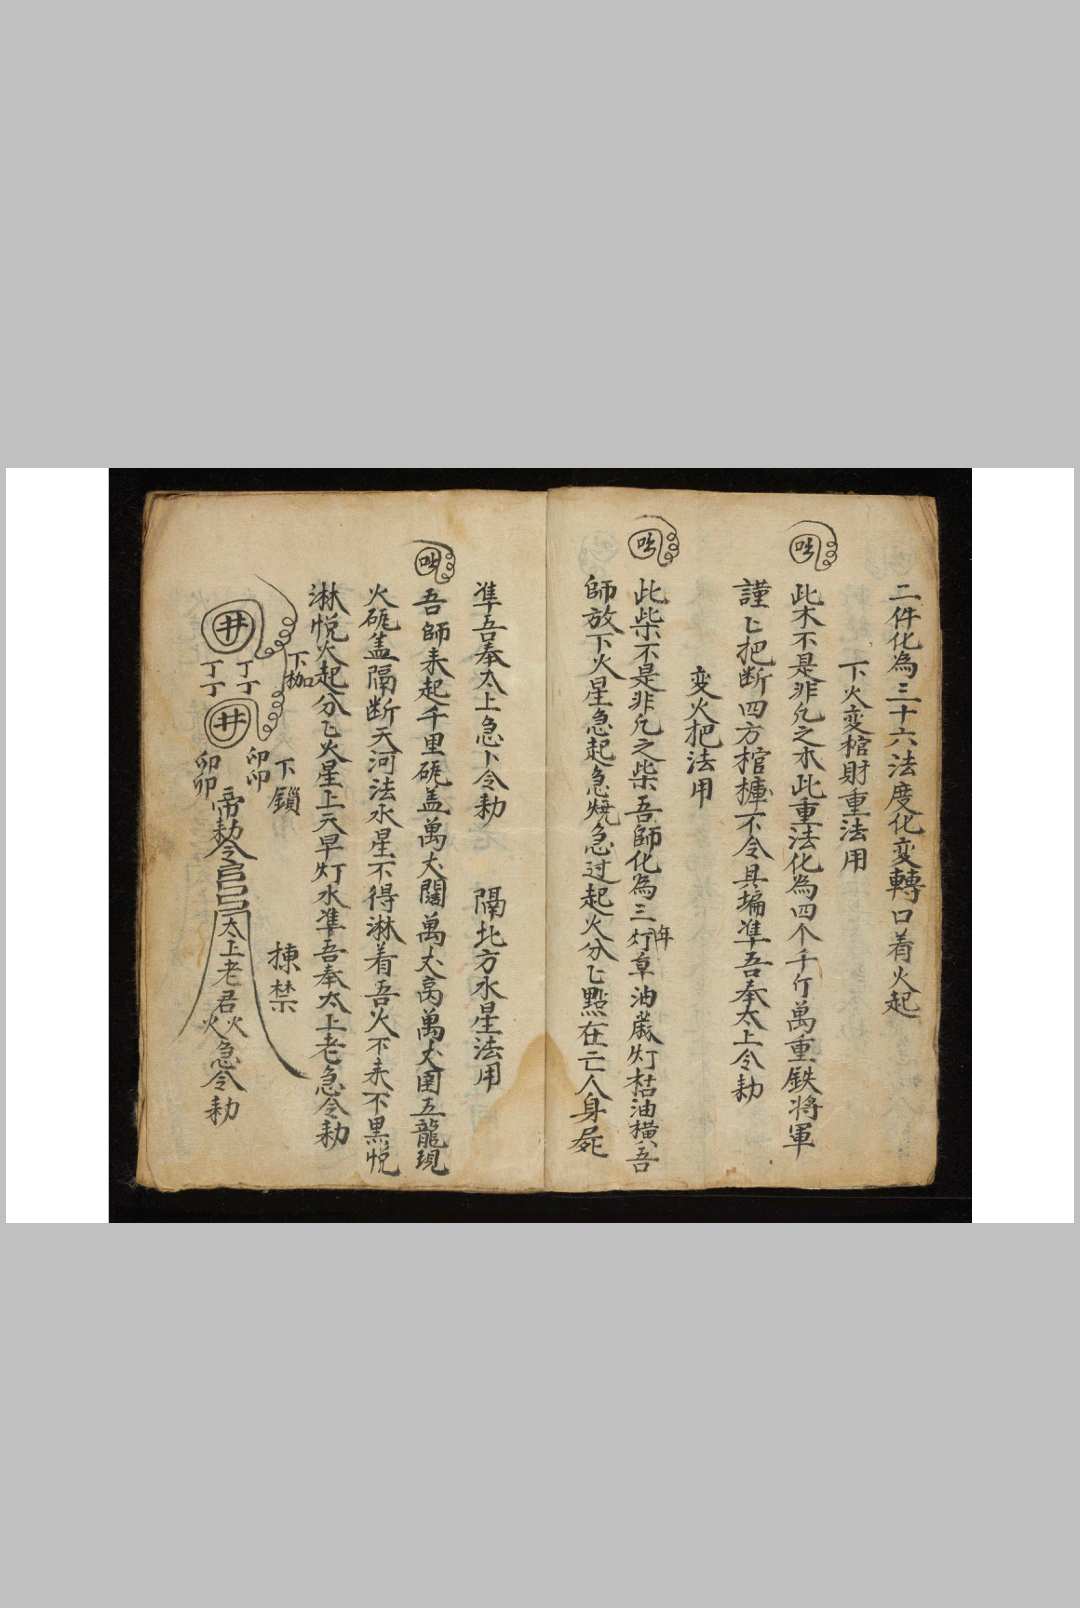 二件化為三十六法度化变轉口着火起
下火变棺財重法用
此木不是非凢之木此重法化為四个千斤萬重鉄将軍
謹〻把断四方棺槤不令具塥準吾奉太上令勅
变火把法用
此柴不是非凢之柴吾師化為三年灯草油歳灯枯油横吾
師放下火星急起急燒急过起火分〻點在亡人身屍
準吾奉太上急〻令勅
隔北方水星法用
吾師来起千里硴盖萬丈闊萬丈高萬丈囯五龍現
火硴盖隔断天河法水星不得淋着吾火不来不黒悦
淋悦火起分〻火星上天旱灯水準吾奉太上老急令勅
井 井
丁丁 丁丁
下枷
下鎖
卯卯 卯卯
帝勅令 太上老君 火火 急令勅
揀禁